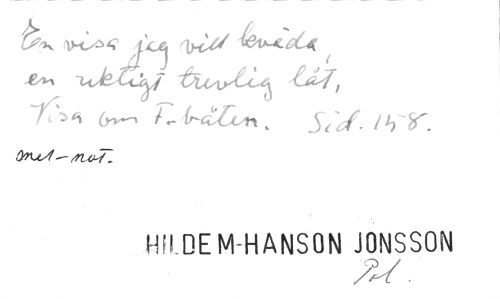 En visa jag vill kväda,
en riktigt trevlig låt,
Visa om F-båten. Sid. 158.
mel-not.
HILDEM-HANSON JONSSON
Pol.